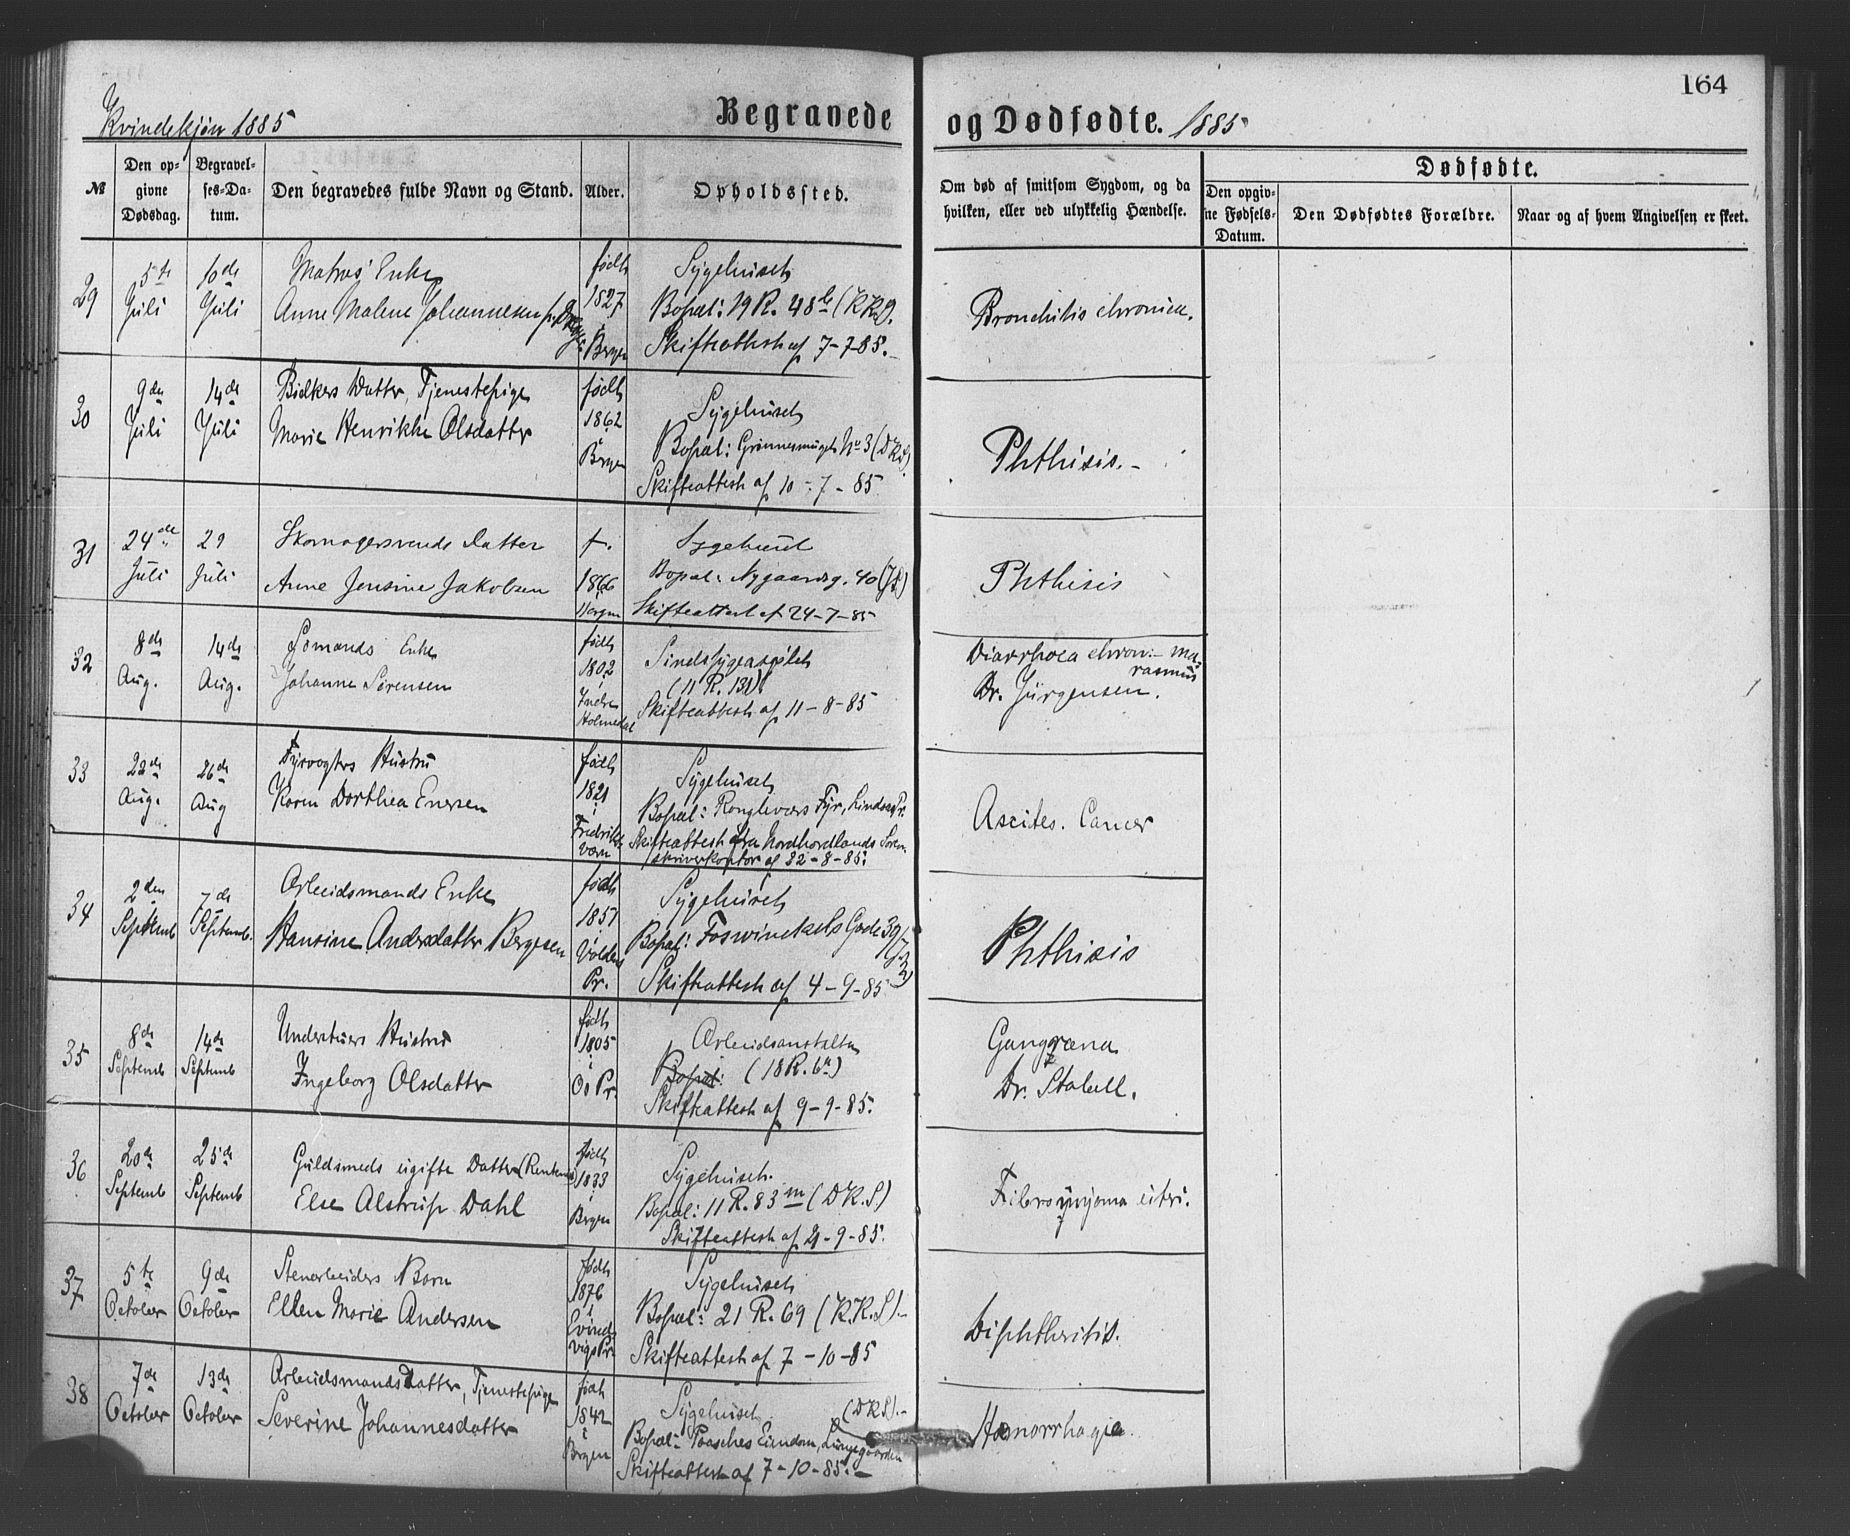 164
Kvindekjøn 1885 Begravede og Dødfødte. 1885
№ Den opgivne Dødsdag. Begravelses-Datum. Den begravedes fulde Navn og Stand. Alder. Opholdssted. Om død af smitsom Sygdom, og da hvilken, eller ved ulykkelig Hændelse. Dødfødte.
Den opgivne Fødsels-Datum. Den Dødfødtes Forældre. Naar og af hvem Angivelsen er skeet.
29 5te Juli 10de Juli
Matros' Enke
Anne Malene Johannesen
født 1827 i Bergen
Sygehuset
Bopæl: 19 R. 48b (K.K.S).
Skifteattest af 7-7-85.-
Bronchitis chronica.
30 9de Juli 14de Juli
Bødkers Datter, Tjenestepige
Marie Henrikke Olsdatter
født 1862 i Bergen
Sygehuset
Bopæl: Grønnesmuget No 3 (D.K.S)
Skifteattest af 10-7-85
Phthisis.-
31 24de Juli 29 Juli
Skomagersvends Datter
Anne Jensine Jakobsen
f. 1866 i Bergen
Sygehuset
Bopæl: Nygaardsg. 40
Skifteattest af 24-7-85
Phthisis
32 8de Aug. 14de Aug.
Sømands Enke
Johanne Sørensen
født 1802 i Indre Holmedal
Sindssygeasylet
(11 R. 131)
Skifteattest af 11-8-85
Diarrhoea chron:- marasmus
Dr. Jürgensen.
33 22de Aug. 26de Aug
Fyrvogters Hustru
Karen Dorthea Enersen
født 1821 i Fredriksværn
Sygehuset
Bopæl: Rongleværs Fyr, Lindaas Pr.
Skifteattest fra Nordhordlands Sorenskriverkontor af 22-8-85.
Ascites. Cancer
34 2den Septemb 7de Septemb.
Arbeidsmands Enke
Hansine Andersdatter Bergesen
født 1857 i Voldens Pr.
Sygehuset
Bopæl: Foswinckels Gade 39
Skifteattest af 4-9-85
Phthisis
35 8de Septemb 14de Septemb
Understuers Hustru
Ingeborg Olsdatter
født 1805 i Os Pr.
Arbeidsanstalten
Bopæl: (18 R. 6a)
Skifteattest af 9-9-85.
Gangræna
Dr. Stabell.
36 20de Septemb 25de Septemb
Guldsmeds ugifte Datter
Else Alstrup Dahl
født 1833 i Bergen
Sygehuset.
Bopæl: 11 R. 83m (D.K.S)
Skifteattest af 21-9-85.
Fibromyoma uteri.
37 5te October 9de October
Stenarbeiders Barn
Ellen Marie Andersen
født 1876 i Evindvigs Pr.
Sygehuset
Bopæl: 21 R. 69 (K.K.S).-
Skifteattest af 7-10-85
Diphtheritis.
38 7de October 13de October
Arbeidsmands Datter, Tjenestepige
Severine Johannesdatter
født 1842 i Bergen
Sygehuset (D.K.S).-
Bopæl: Paasches Eiendom, Lungegaarden
Skifteattest af 7-10-85.-
Hæmorrhagia